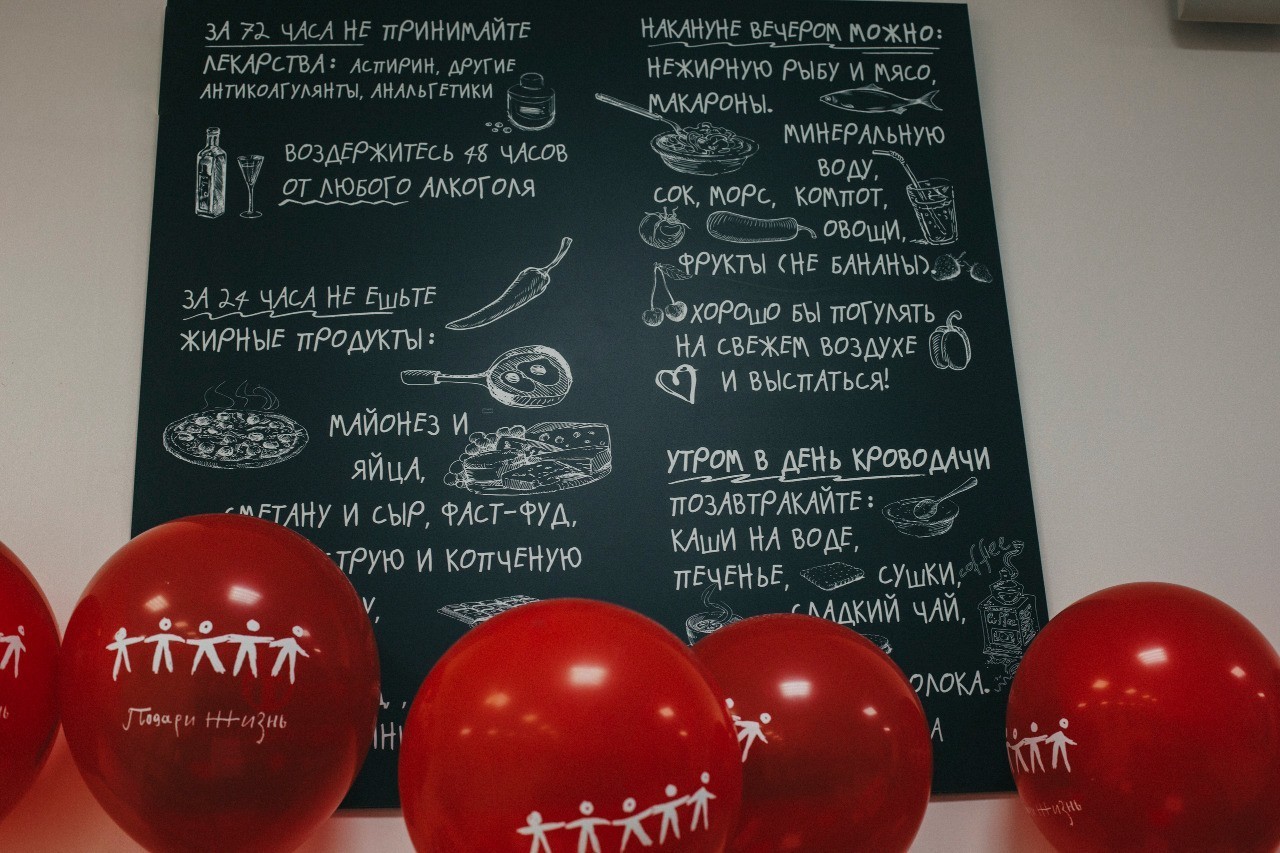 ЗА 72 ЧАСА НЕ ПРИНИМАЙТЕ
ЛЕКАРСТВА: АСПИРИН, ДРУГИЕ
АНТИКОАГУЛЯНТЫ, АНАЛЬГЕТИКИ
ВОЗДЕРЖИТЕСЬ 48 ЧАСОВ
ОТ ЛЮБОГО АЛКОГОЛЯ
ЗА 24 ЧАСА НЕ ЕШЬТЕ
ЖИРНЫЕ ПРОДУКТЫ:
МАЙОНЕЗ И
ЯЙЦА,
СМЕТАНУ И СЫР, ФАСТ-ФУД,
И КОПЧЕНУЮ
НАКАНУНЕ ВЕЧЕРОМ МОЖНО:
НЕЖИРНУЮ РЫБУ И МЯСО,
МАКАРОНЫ.
МИНЕРАЛЬНУЮ
ВОДУ,
СОК, МОРС, КОМПОТ,
ОВОЩИ,
ФРУКТЫ (НЕ БАНАНЫ).
ХОРОШО БЫ ПОГУЛЯТЬ
НА СВЕЖЕМ ВОЗДУХЕ
И ВЫСПАТЬСЯ!
УТРОМ В ДЕНЬ КРОВОДАЧИ
ПОЗАВТРАКАЙТЕ:
КАШИ НА ВОДЕ,
ПЕЧЕНЬЕ, СУШКИ,
coffee
СЛАДКИЙ ЧАЙ,
Подари Жизнь